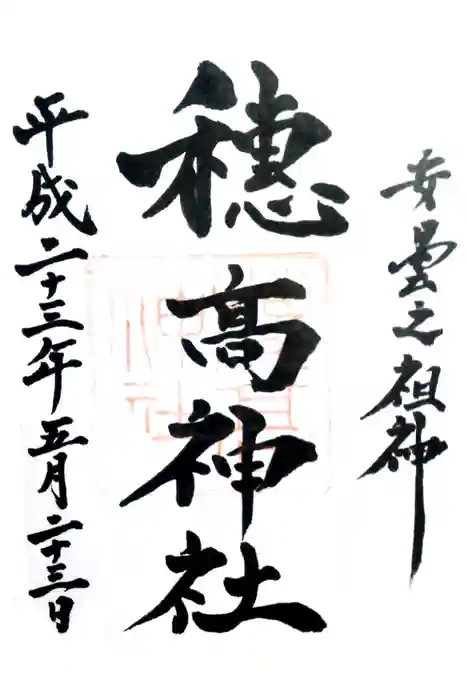 安曇之祖神
穂髙神社
平成二十三年五月二十三日
穂高神社